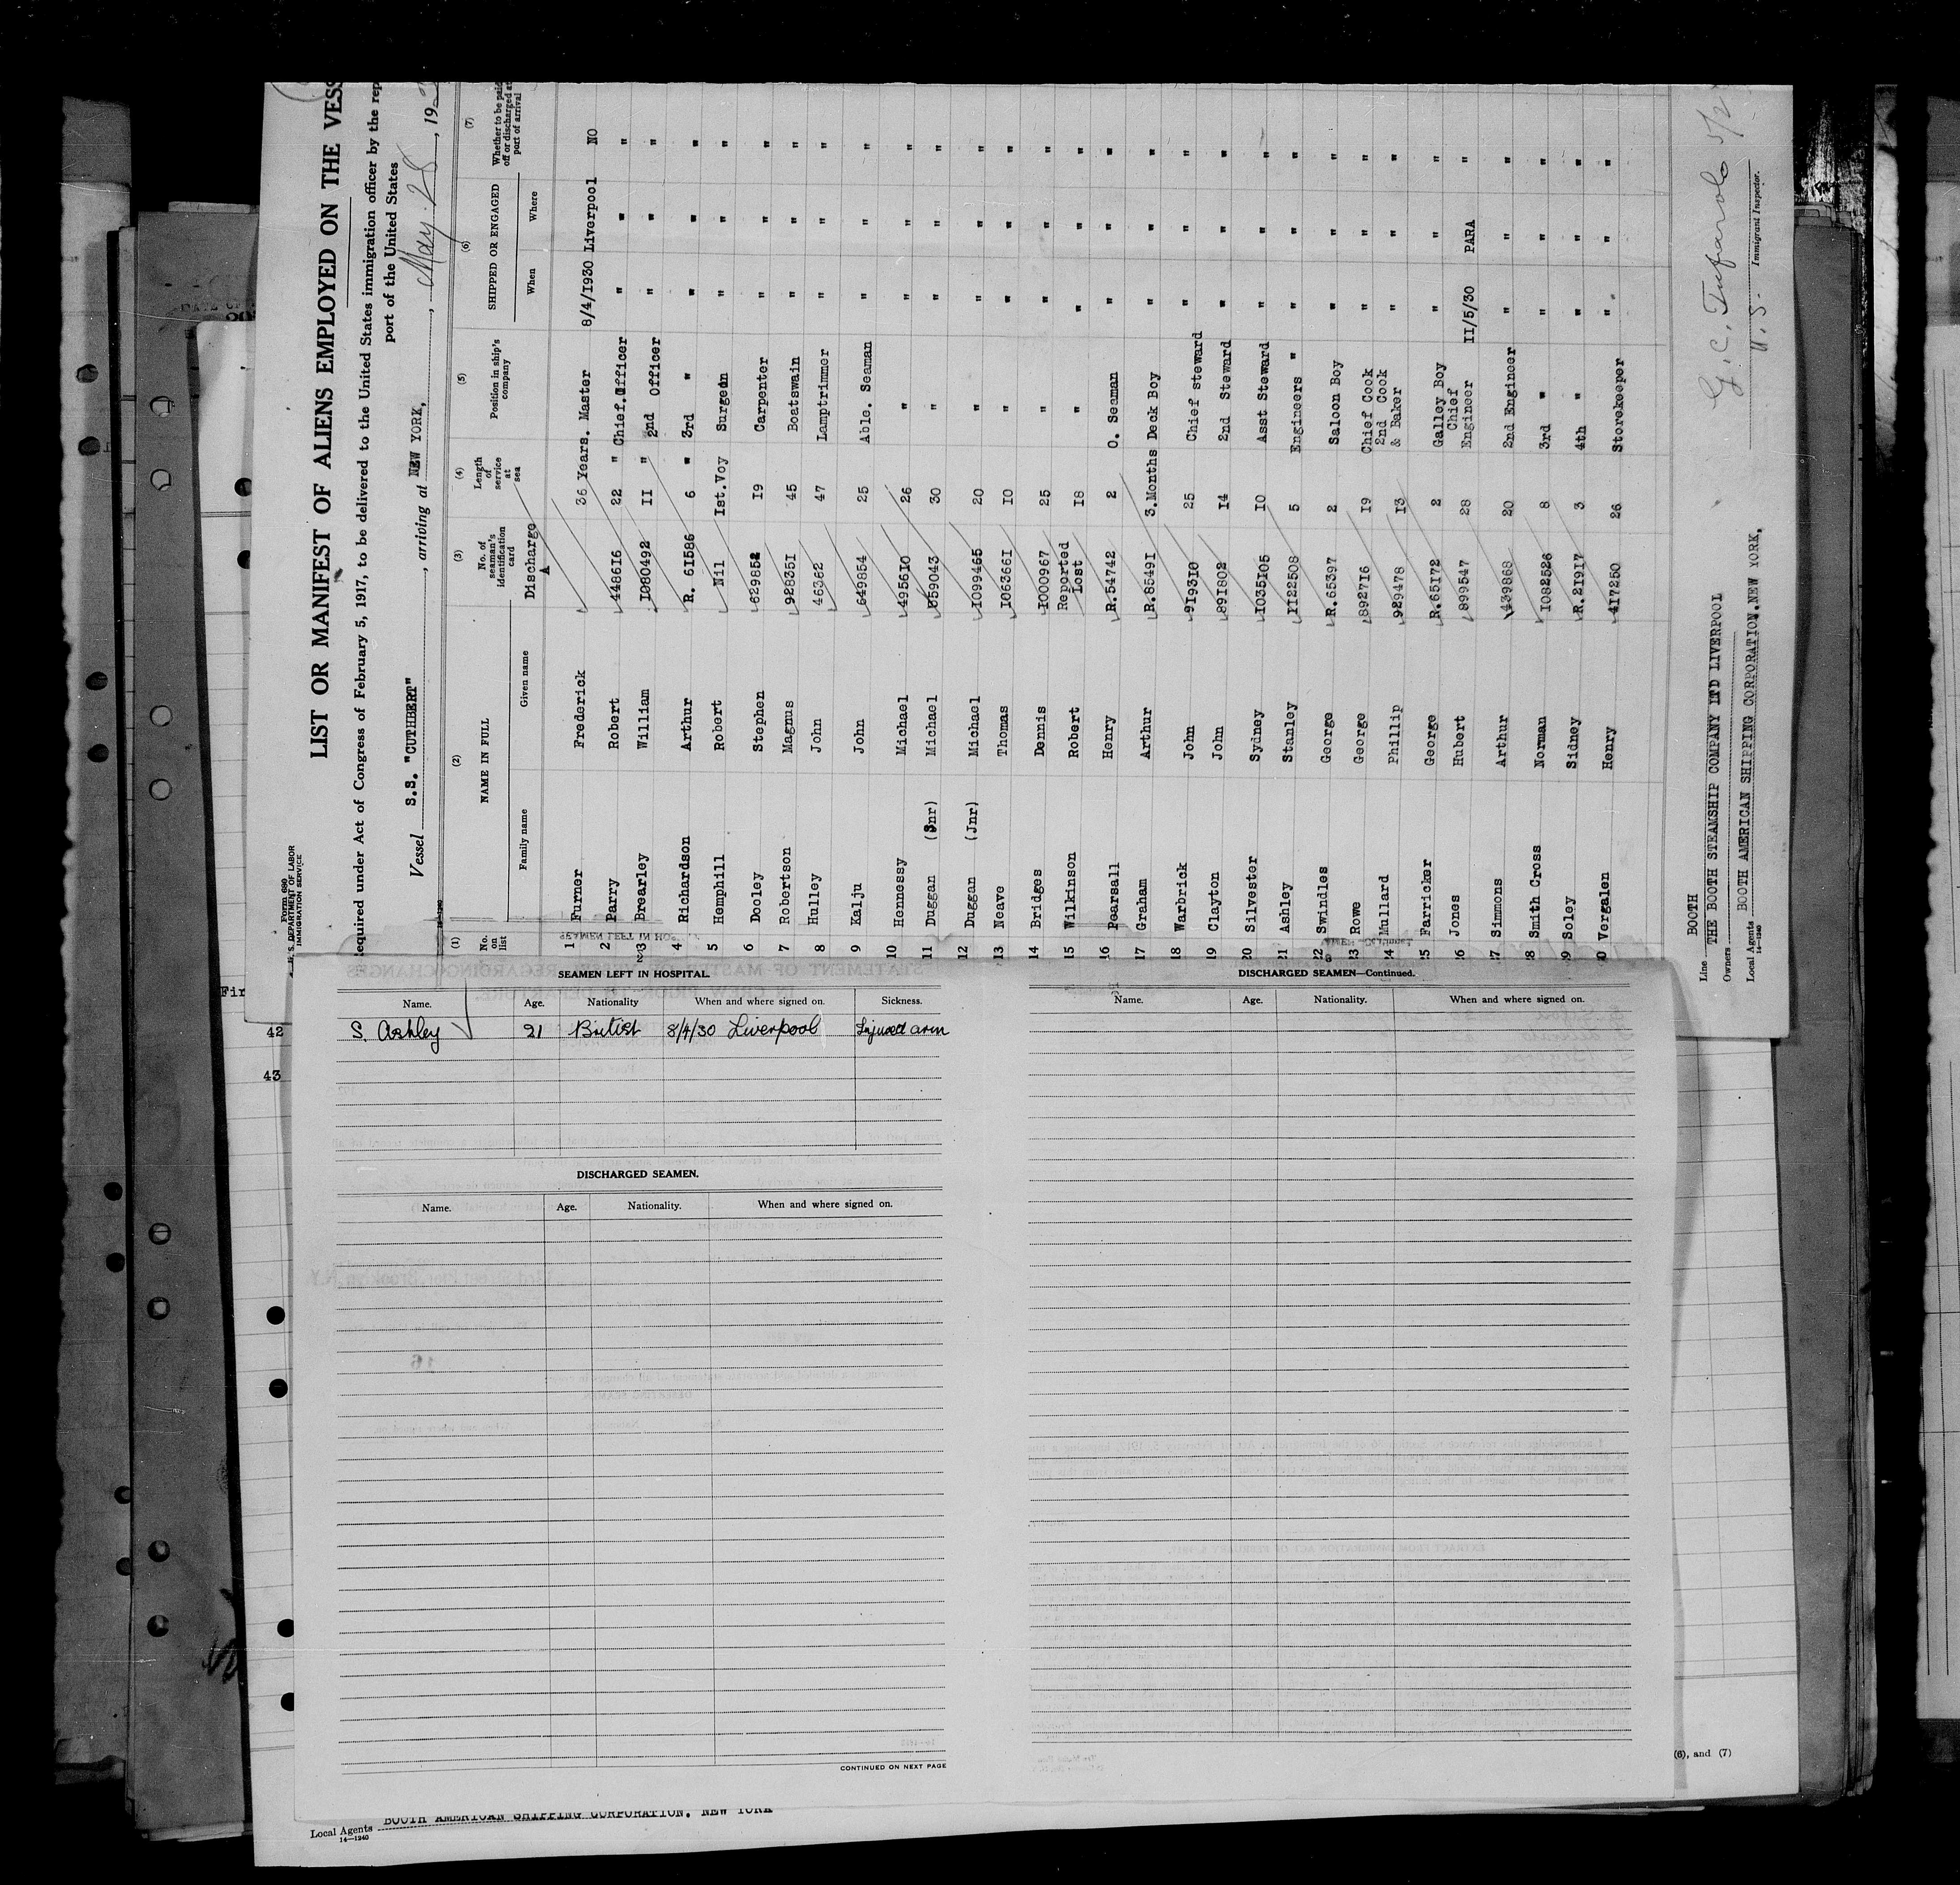 Form 680
U. S. DEPARTMENT OF LABOR
IMMIGRATION SERVICE
LIST OR MANIFEST OF ALIENS EMPLOYED ON THE VESS
required under Act of Congress of February 5, 1917, to be delivered to the United States immigration officer by the rep
port of the United States
Vessel S.S. "CUTHBERT" , arriving at NEW YORK, , May 28 , 19
(1) (2) (3) (4) (5) (6) (7)
No. on list NAME IN FULL No. of seaman's identification card Length of service at sea Position in ship's company SHIPPED OR ENGAGED Whether to be paid off or discharged at port of arrival
Family name Given name Discharge When Where
1 Furner Frederick 36 Years. Master 8/4/1930 Liverpool NO
2 Parry Robert 448616 22 " Chief.Officer " " "
3 Brearley William 1080492 11 " 2nd Officer " " "
4 Richardson Arthur R. 61586 6 " 3rd " " " "
5 Hemphill Robert Nil 1st.Voy Surgeon " " "
6 Dooley Stephen 629852 19 Carpenter " " "
7 Robertson Magnus 928351 45 Boatswain " " "
8 Hulley John 46362 47 Lamptrimmer " " "
9 Kalju John 649854 25 Able. Seaman " " "
10 Hennessy Michael 495610 26 " " " "
11 Duggan (Snr) Michael 859043 30 " " " "
12 Duggan (Jnr) Michael 1099465 20 " " " "
13 Neave Thomas 1063661 10 " " " "
14 Bridges Dennis 1000967 25 " " " "
15 Wilkinson Robert Reported Lost 18 " " " "
16 Pearsall Henry R.54742 2 O. Seaman " " "
17 Graham Arthur R.85491 3.Months Deck Boy " " "
18 Warbrick John 919310 25 Chief steward " " "
19 Clayton John 891802 14 2nd Steward " " "
20 Silvester Sydney 1035105 10 Asst Steward " " "
21 Ashley Stanley 1122508 5 Engineers " " " "
22 Swindles George R.65397 2 Saloon Boy " " "
23 Rowe George 892716 19 Chief Cook " " "
24 Mullard Phillip 929478 13 2nd Cook & Baker " " "
25 Farricker George R.65172 2 Galley Boy " " "
26 Jones Hubert 899547 28 Chief Engineer 11/5/30 PARA "
27 Simmons Arthur 439868 20 2nd Engineer " " "
28 Smith Cross Norman 1082526 8 3rd " " " "
29 Soley Sidney R.21917 3 4th " " " "
30 Vergalen Henry 417250 26 Storekeeper " " "
Line BOOTH
Owners THE BOOTH STEAMSHIP COMPANY LTD LIVERPOOL
Local Agents BOOTH AMERICAN SHIPPING CORPORATION.NEW YORK.
14—1240
U.S. Immigrant Inspector.
Fir
42
43
SEAMEN LEFT IN HOSPITAL.
Name. Age. Nationality When and where signed on. Sickness.
S. Ashley 21 British 8/4/30 Liverpool Injured arm
DISCHARGED SEAMEN.
Name. Age. Nationality. When and where signed on.
CONTINUED ON NEXT PAGE
DISCHARGED SEAMEN—Continued.
Name. Age. Nationality. When and where signed on.
(6), and (7)
Local Agents BOOTH AMERICAN SHIPPING CORPORATION. NEW YORK
14—1240